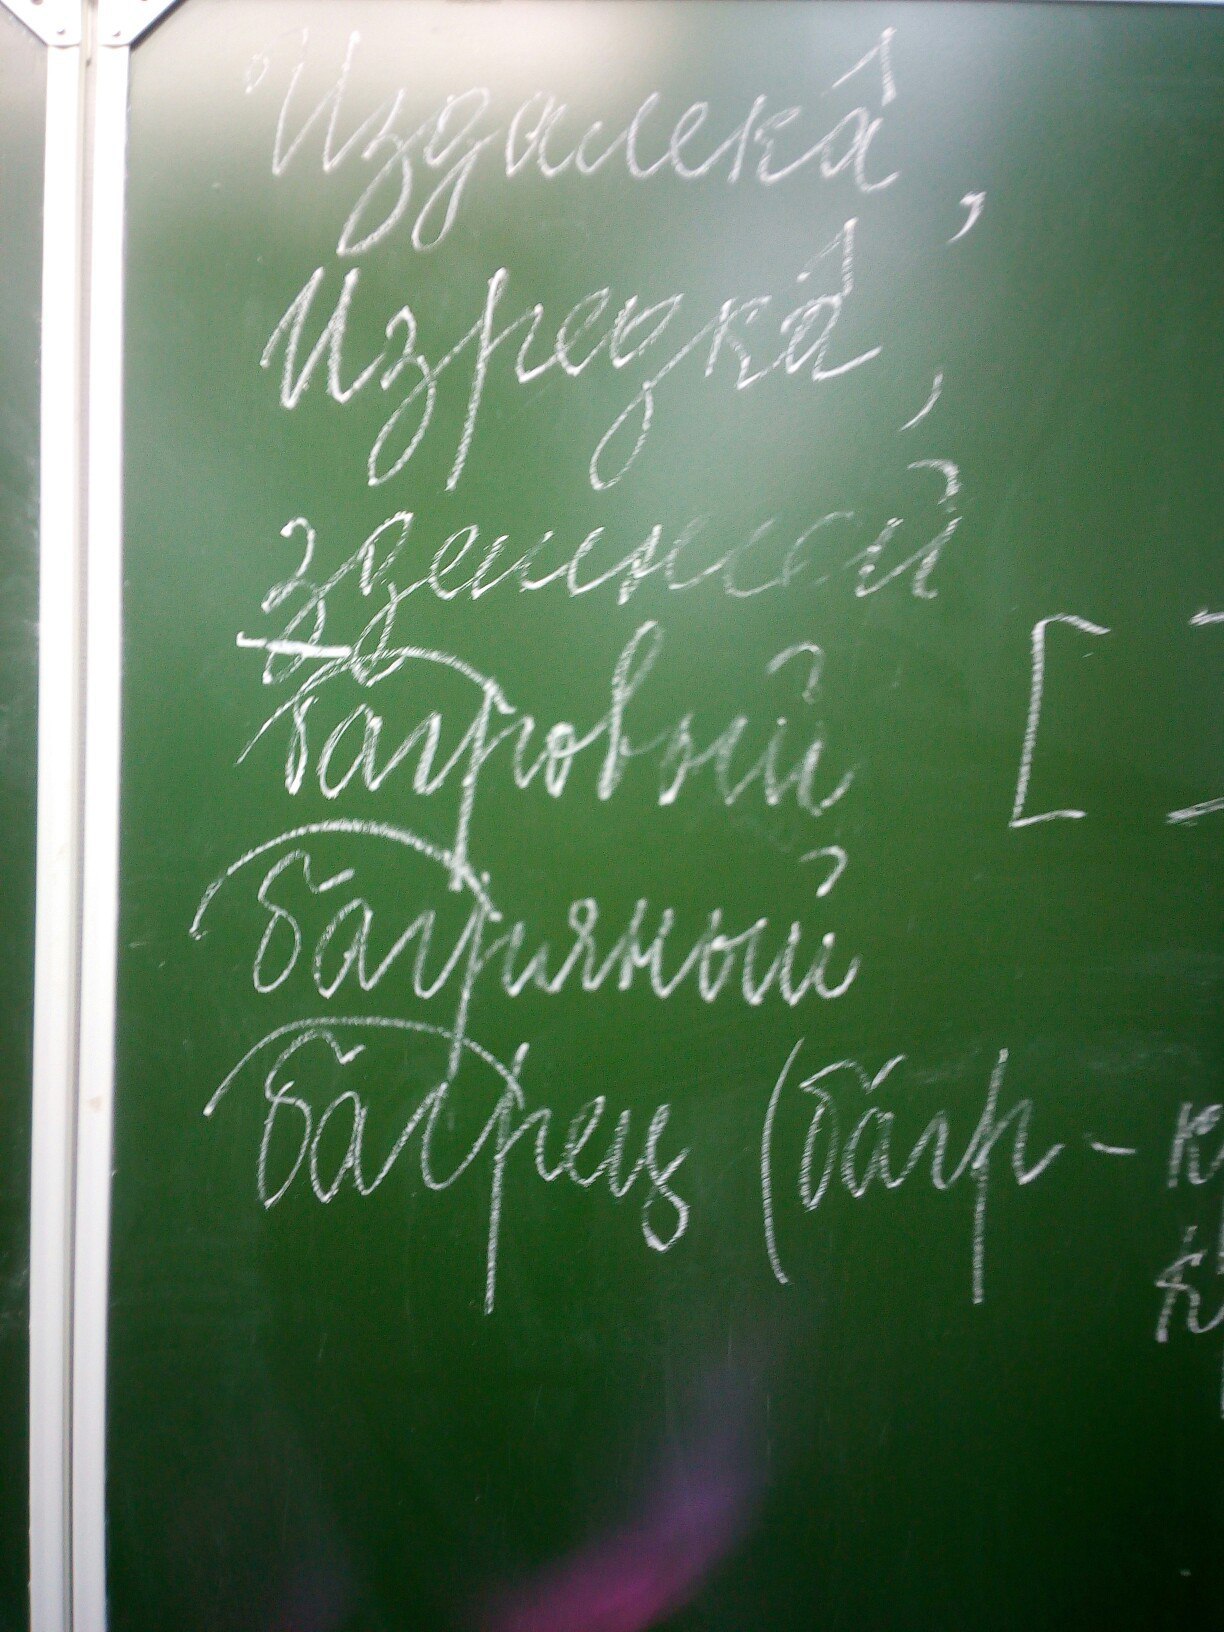 Издалека,
Изредка,
здешний
багровый [ ]
багряный
багрец (багр - к
к